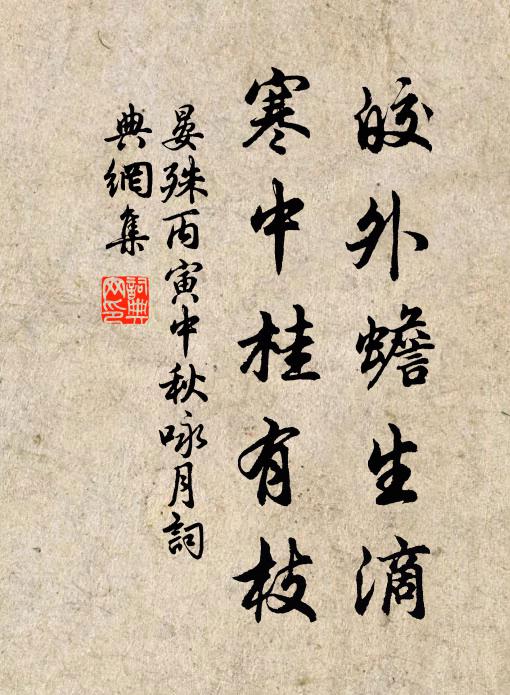 皎外蟾生滴
寒中桂有枝
晏殊丙寅中秋咏月詞
典網集
詞典
网印